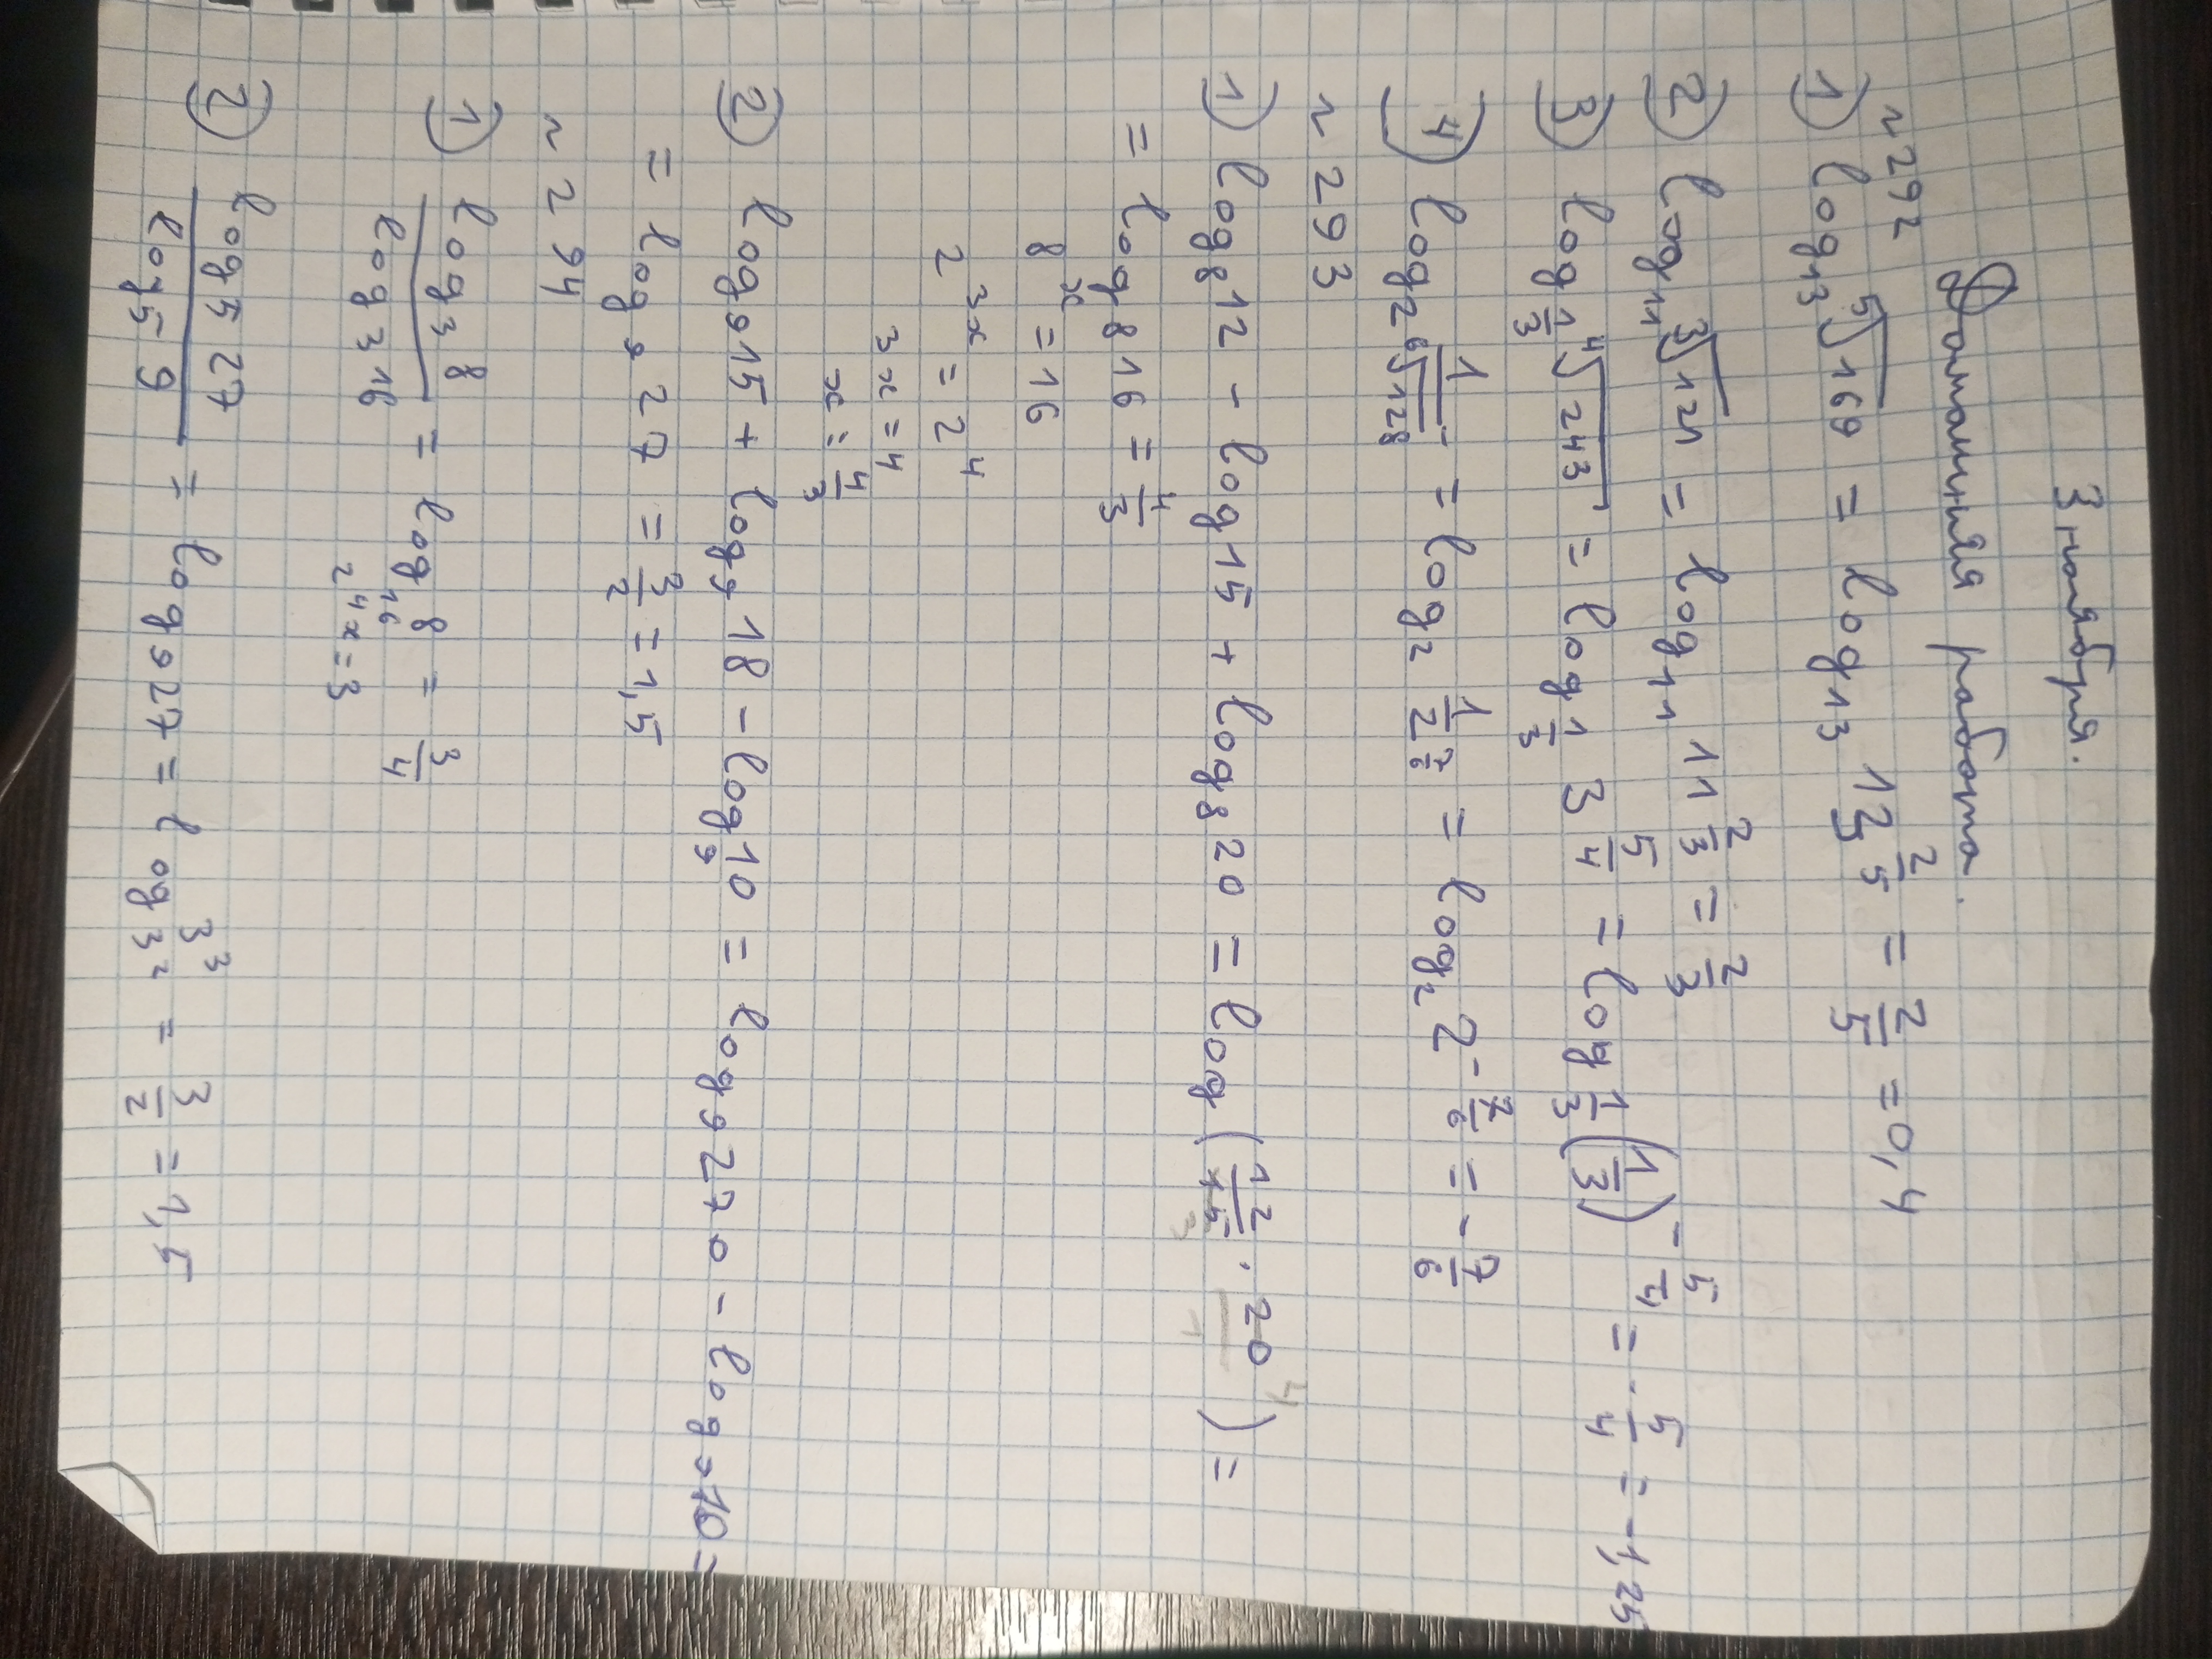 3 ноября.
Домашняя работа.
~292
1) log₁₃ ⁵√169 = log₁₃ 13^(2/5) = 2/5 = 0,4
2) log₁₁ ³√121 = log₁₁ 11^(2/3) = 2/3
3) log_(1/3) ⁴√243 = log_(1/3) 3^(5/4) = log_(1/3) (1/3)^(-5/4) = -5/4 = -1,25
4) log₂ 1/⁶√128 = log₂ 1/2^(7/6) = log₂ 2^(-7/6) = -7/6
~293
1) log₈12 - log15 + log₈20 = log(12/15 · 20) =
= log₈16 = 4/3
8^x = 16
2^(3x) = 2^4
3x = 4
x = 4/3
2) log₉15 + log₉18 - log₉10 = log₉270 - log₉10 =
= log₉27 = 3/2 = 1,5
~294
1) log₃8/log₃16 = log₁₆8 = 3/4
2^4x = 3
2) log₅27/log₅9 = log₉27 = log_(3²) 3³ = 3/2 = 1,5